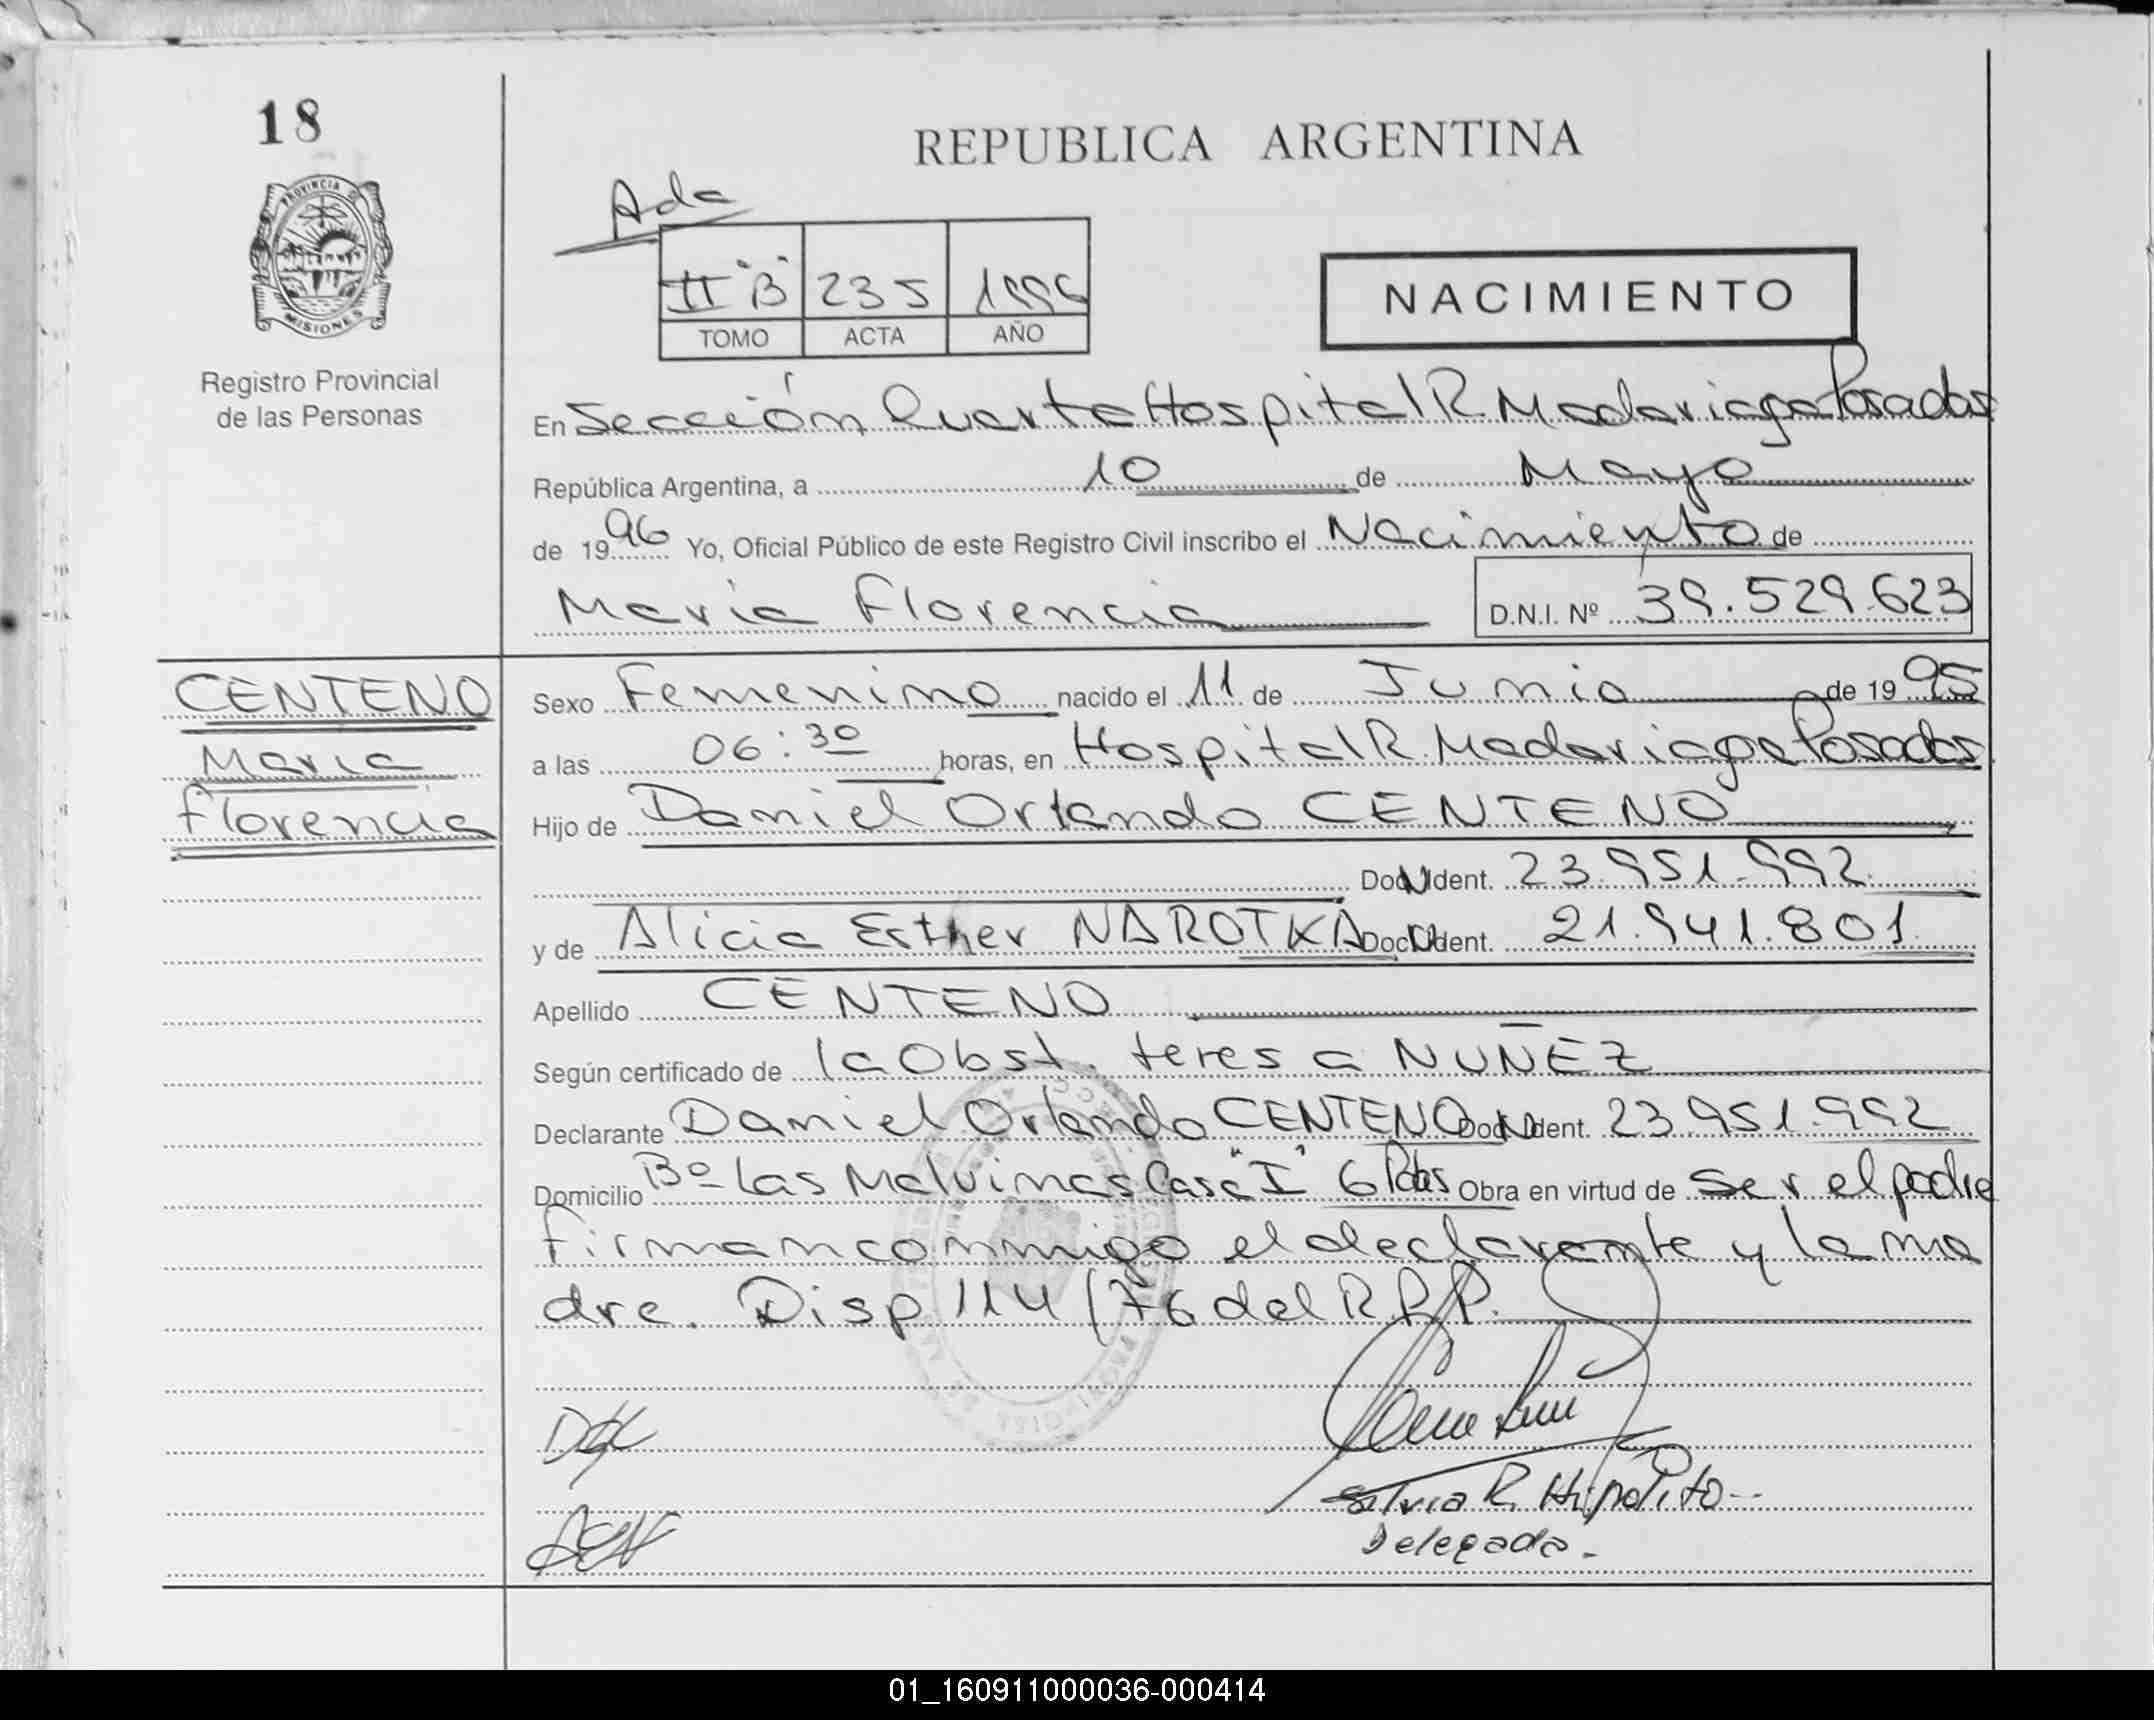 18
REPUBLICA ARGENTINA
PROVINCIA DE
MISIONES
Registro Provincial
de las Personas
Ada
II "B" 235 1996
TOMO ACTA AÑO
NACIMIENTO
En Sección Cuarta Hospital R. Madariaga Posadas
República Argentina, a 10 de Mayo
de 1996 Yo, Oficial Público de este Registro Civil inscribo el Nacimiento de
María Florencia D.N.I. Nº 39.529.623
CENTENO
María
Florencia
Sexo Femenino nacido el 11 de Junio de 1995
a las 06:30 horas, en Hospital R. Madariaga Posadas
Hijo de Daniel Orlando CENTENO
Doc. N Ident. 23.951.992
y de Alicia Esther NAROTKA Doc. N Ident. 21.941.801
Apellido CENTENO
Según certificado de la Obst. teresa NUÑEZ
Declarante Daniel Orlando CENTENO Doc. N Ident. 23.951.992
Domicilio Bº Las Malvinas Casa "I" 6 Pdas Obra en virtud de ser el padre
firman conmigo el declarante y la ma
dre. Disp 114/76 del R.P.P.
Silvia R. Hipólito
Delegada.
01_160911000036-000414